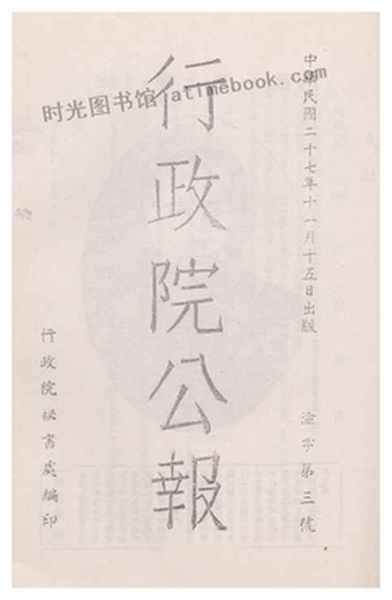 中華民國二十七年十一月十五日出版
渝字第三號
行政院公報
行政院秘書處編印
时光图书馆 atimebook.com